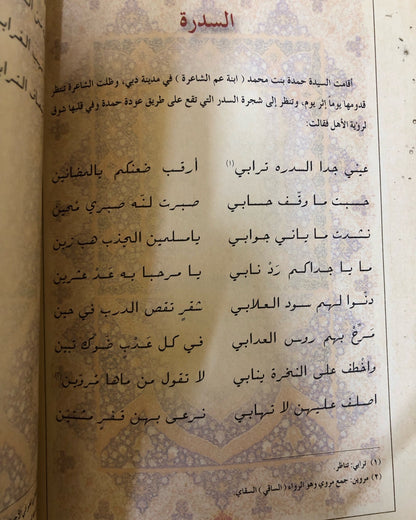 السدرة
أقامت السيدة حمدة بنت محمد ( ابنة عم الشاعرة ) في مدينة دبي، وظلت الشاعرة تنتظر
قدومها يوماً إثر يوم، وتنظر إلى شجرة السدر التي تقع على طريق عودة حمدة وفي قلبها شوق
لرؤية الأهل فقالت:
عيني حدا السدره ترابي (١) أرقب ضعنكم يالمضانين
حسبت ما وقّف حسابي صبرت لنّه صبري محين
نشدت ما ياني جوابي يامسلمين الجذب هب زين
ما يا جداكم رَدْ نابي يا مرحبا به عَدْ عشرين
دنّوا لهم سود العلابي شقرٍ تقص الدرب في حين
مَرّخ بهم روس العدابي في كل عَذبٍ ضَوّك تبين
واخْطف على النخرة ينابي لا تقول من ماها مروين(٢)
اصلف عليهن لا تهابي نرعى بهن قفرٍ
(١) ترابي: تناظر.
(٢) مروين: جمع مروي وهو الرواء ( الساقي ) السقاي.